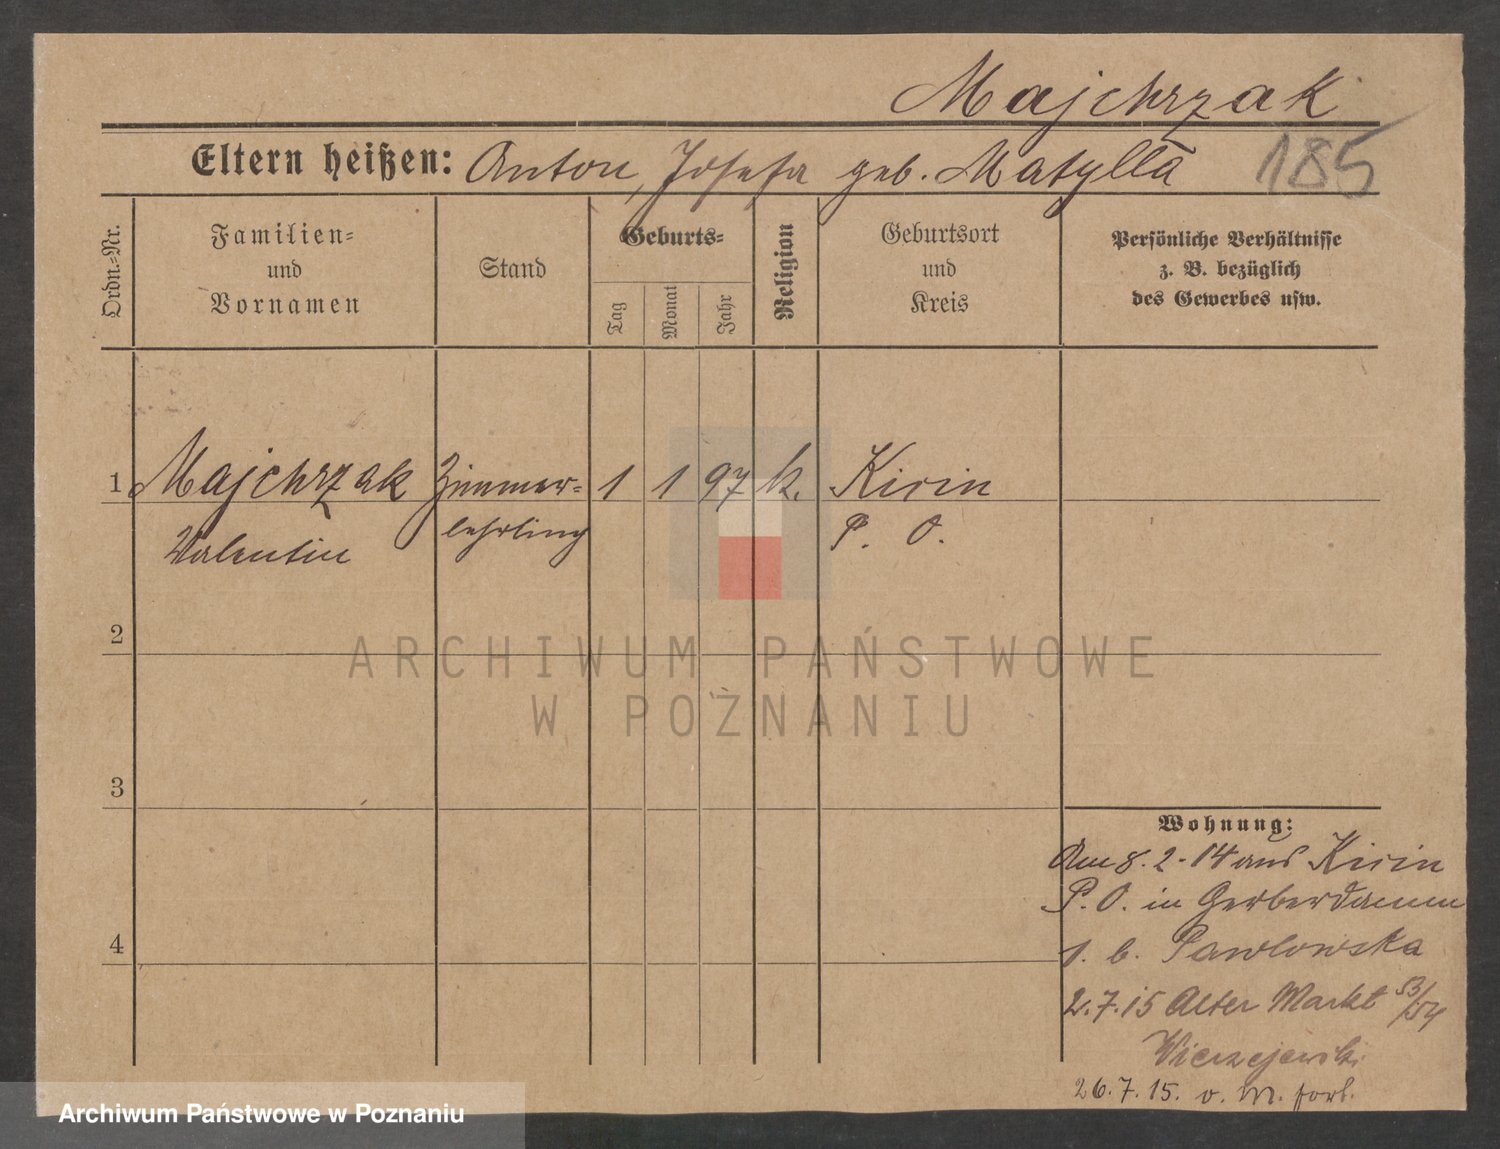 Majchrzak
Eltern heißen: Anton, Josefa geb. Matylla
185
Ordn.-Nr.
Familien-
und
Vornamen
Stand
Geburts-
Tag
Monat
Jahr
Religion
Geburtsort
und
Kreis
Persönliche Verhältnisse
z. B. bezüglich
des Gewerbes usw.
1 Majchrzak Zimmer- 1 1 97 k. Kirin
Valentin lehrling P. O.
2
3
4
Wohnung:
Am 8. 2. 14 aus Kirin
P. O. in Gerberdamm
1. b. Pawlowska
2.7.15 Alter Markt 53/54
Wierzejewski
26.7.15. o. M. fort.
ARCHIWUM PAŃSTWOWE
W POZNANIU
Archiwum Państwowe w Poznaniu